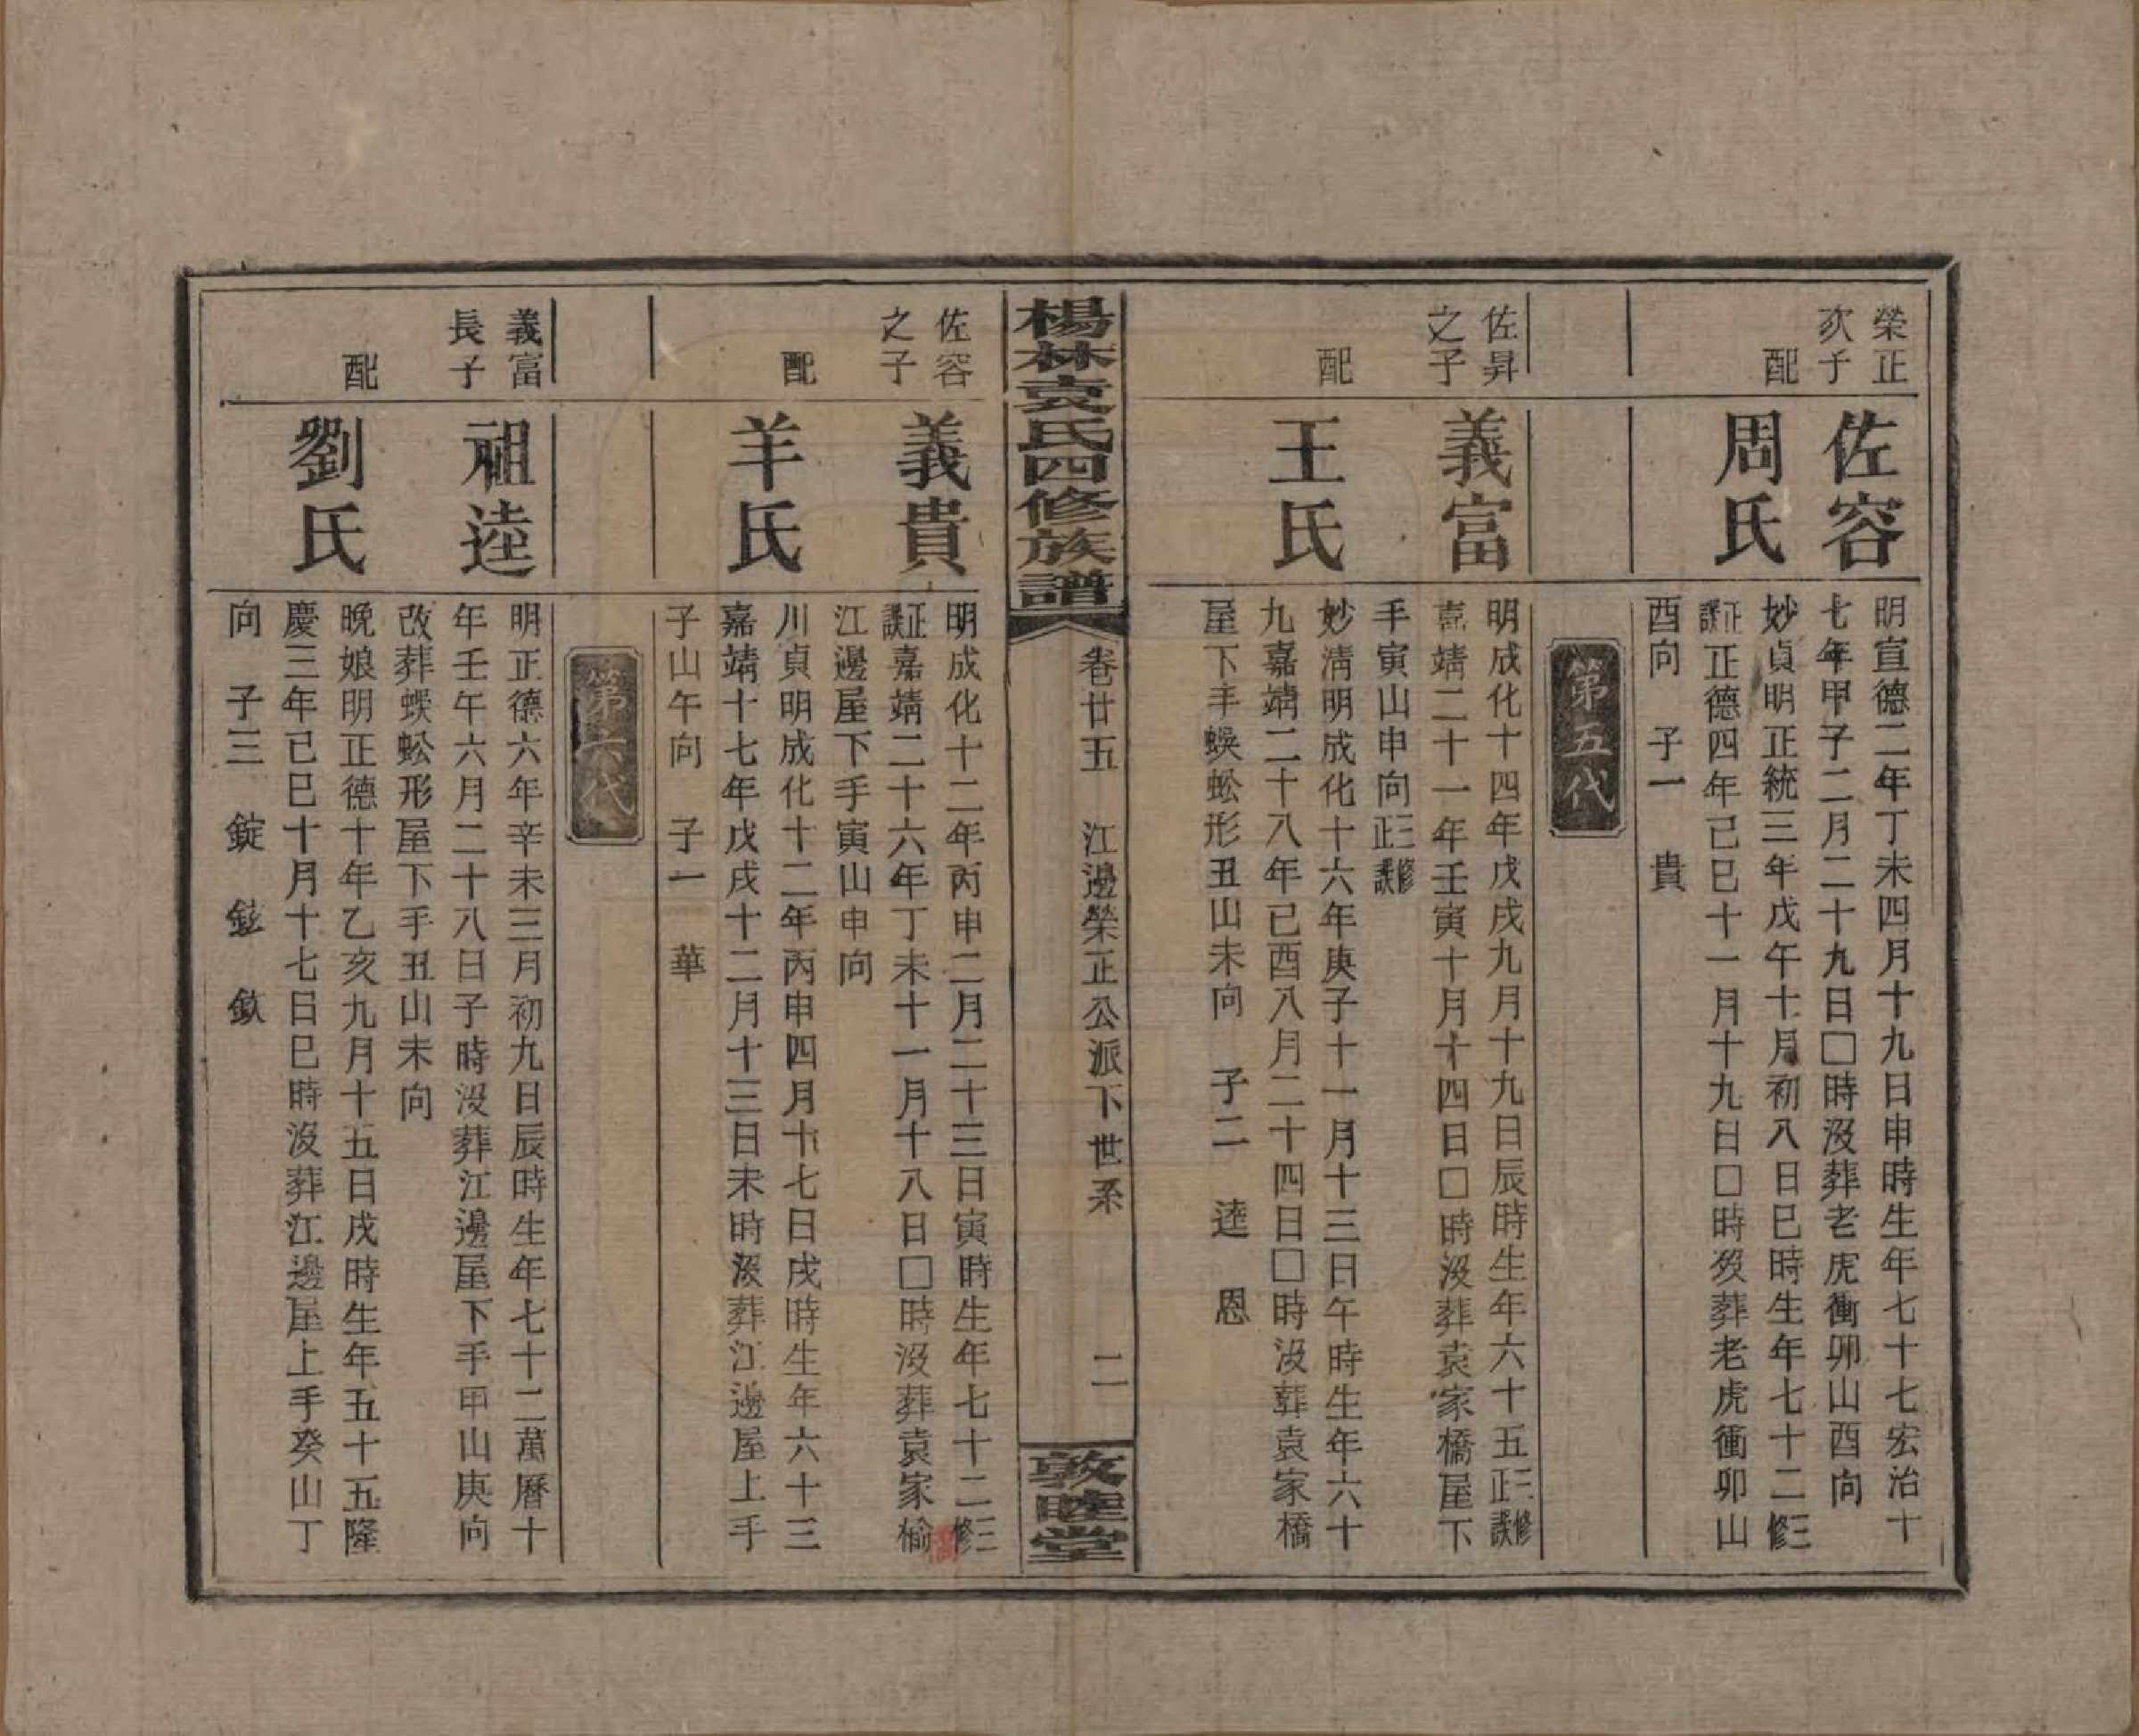 榮正
次子
佐容
明宣德二年丁未四月十九日申時生年七十七宏治十
七年甲子二月二十九日□時沒葬老虎衝卯山酉向
配
周氏
妙貞明正統三年戊午十月初八日巳時生年七十二三修
正誤正德四年己巳十一月十九日□時歿葬老虎衝卯山
酉向 子一 貴
第五代
佐昇
之子
義富
明成化十四年戊戌九月十九日辰時生年六十五三修正誤
嘉靖二十一年壬寅十月十四日□時沒葬袁家橋屋下
手寅山申向三修正誤
配
王氏
妙淸明成化十六年庚子十一月十三日午時生年六十
九嘉靖二十八年己酉八月二十四日□時沒葬袁家橋
屋下手蜈蚣形丑山未向 子二 逵 恩
楊林袁氏四修族譜
卷廿五 江邊榮正公派下世系 二
敦睦堂
佐容
之子
義貴
明成化十二年丙申二月二十三日寅時生年七十二三修
正誤嘉靖二十六年丁未十一月十八日□時沒葬袁家橋
江邊屋下手寅山申向
配
羊氏
川貞明成化十二年丙申四月十七日戌時生年六十三
嘉靖十七年戊戌十二月十三日未時沒葬江邊屋上手
子山午向 子一 華
第六代
義富
長子
祖逵
明正德六年辛未三月初九日辰時生年七十二萬曆十
年壬午六月二十八日子時沒葬江邊屋下手甲山庚向
改葬蜈蚣形屋下手丑山未向
配
劉氏
晚娘明正德十年乙亥九月十五日戌時生年五十五隆
慶三年己巳十月十七日巳時沒葬江邊屋上手癸山丁
向 子三 錠